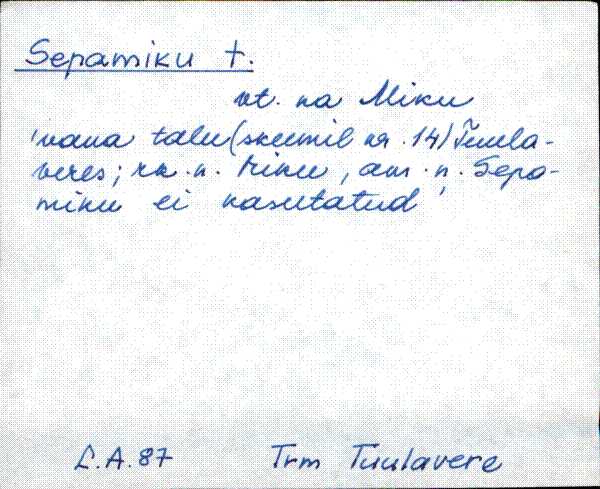 Sepamiku t.
vt. ka Miku
'vana talu (skeemil nr. 14) Tuula-
veres; rk. n. Miku, am. n. Sepa-
miku ei kasutatud'
L.A. 87 Trm Tuulavere